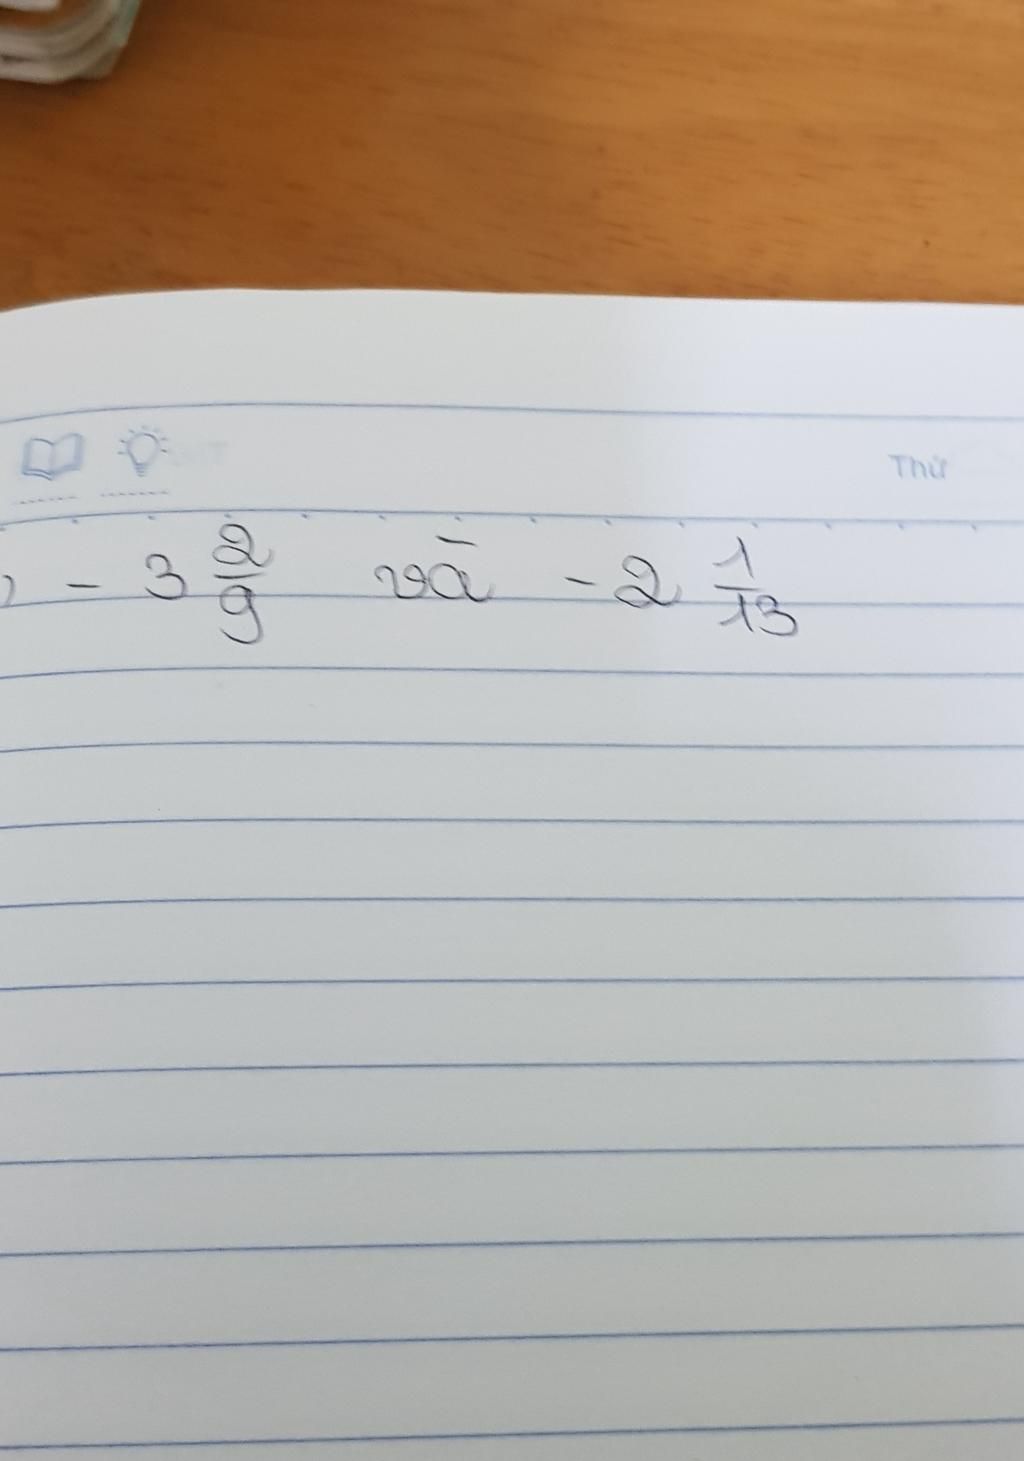 Thứ
) - 3 2/9 và - 2 1/13